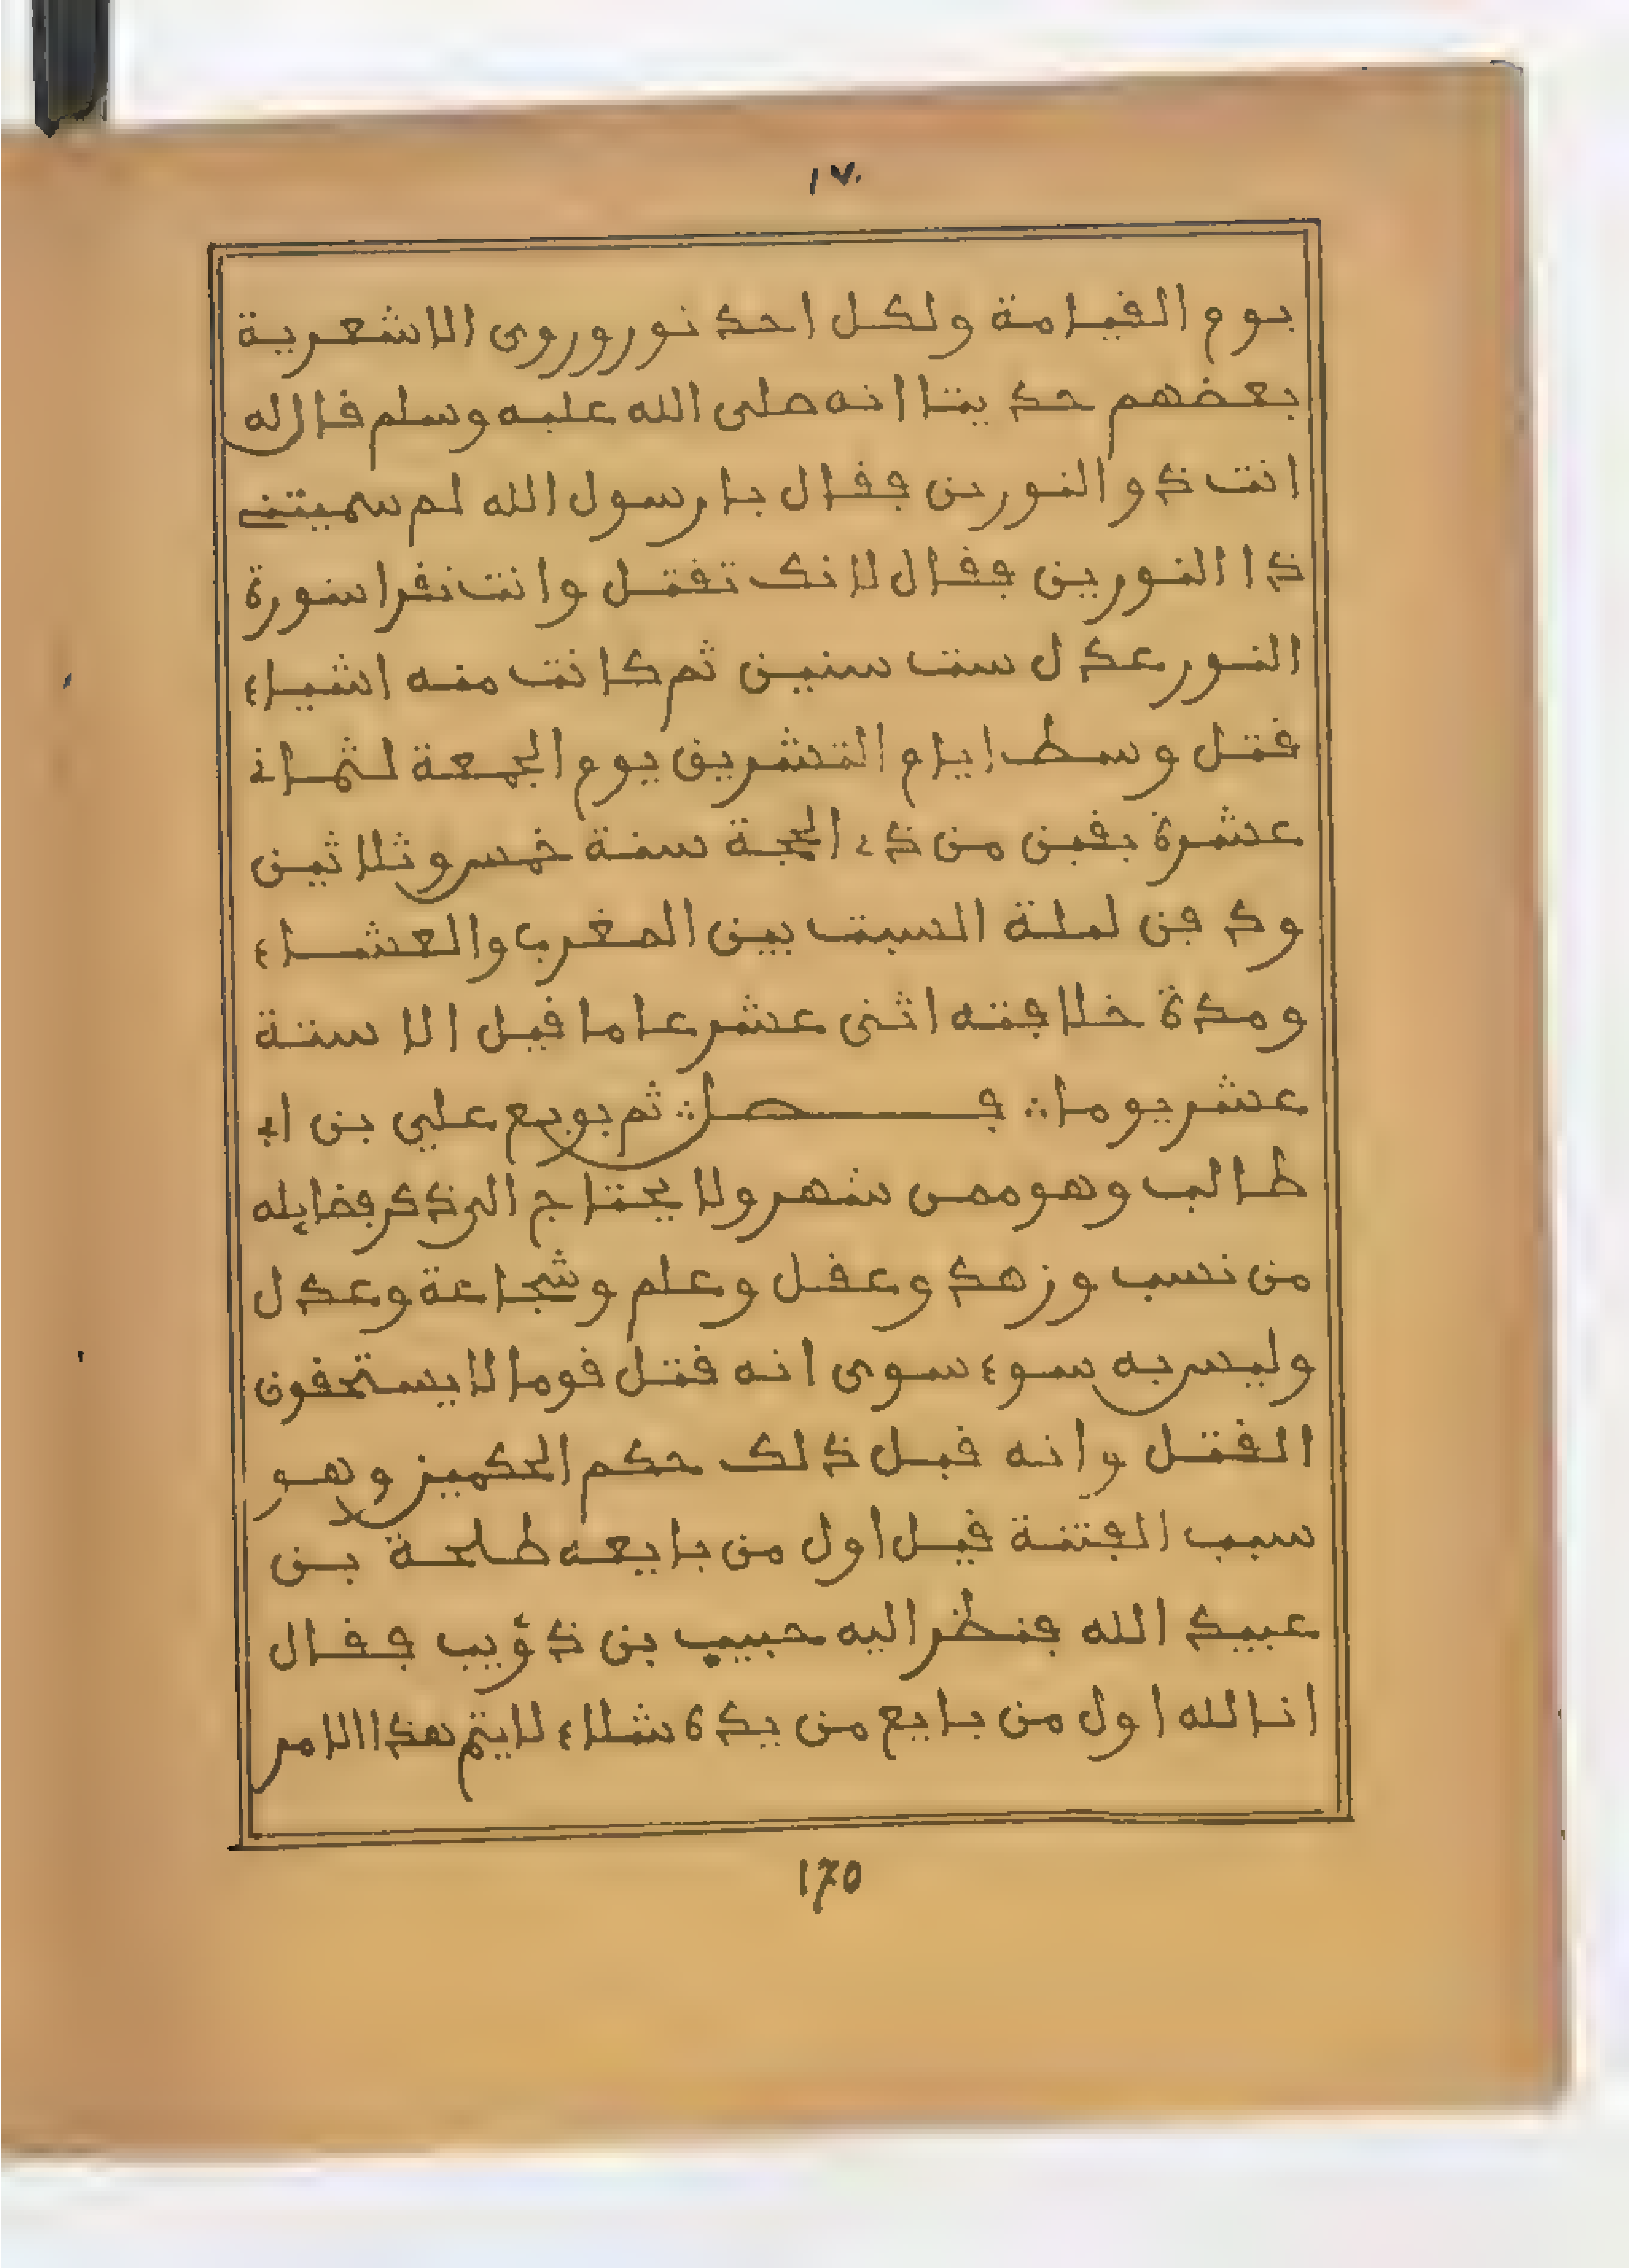 ١٧٠
يوم القيامة ولكل احد نور وروى الاشعرية
بعضهم حديثا انه صلى الله عليه وسلم قال له
انت ذو النورين فقال يا رسول الله لم سميتني
ذا النورين فقال لانك تقتل وانت تقرا سورة
النور عدل ست سنين ثم كانت منه اشياء
قتل وسط ايام التشريق يوم الجمعة لثمان
عشرة بقين من ذي الحجة سنة خمس وثلاثين
ودفن ليلة السبت بين المغرب والعشاء
ومدة خلافته اثنى عشر عاما قيل الا ستة
عشر يوما ∴ فصل ∴ ثم بويع علي بن ابي
طالب وهو ممن شهر ولا يحتاج الى ذكر فضايله
من نسب وزهد وعقل وعلم وشجاعة وعدل
وليس به سوء سوى انه قتل قوما لا يستحقون
القتل وانه قبل ذلك حكم الحكمين وهو
سبب الفتنة قيل اول من بايعه طلحة بن
عبيد الله فنظر اليه حبيب بن ذؤيب فقال
انا لله اول من بايع من يده شلاء لا يتم هذا الامر
170